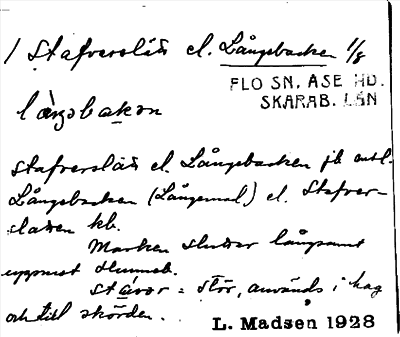 / Stafverslän el. Långebacken 1/8
FLO SN, ÅSE HD.
SKARAB. LÄN
långbakən
Stafverslän el. Långebacken jb enl.
Långebacken (Långemal) el. Stafver-
slätten kb.
Marken sluttar långsamt
uppmot Hunneb.
stávər = stör, används i hag
och till skörden.
L. Madsen 1928